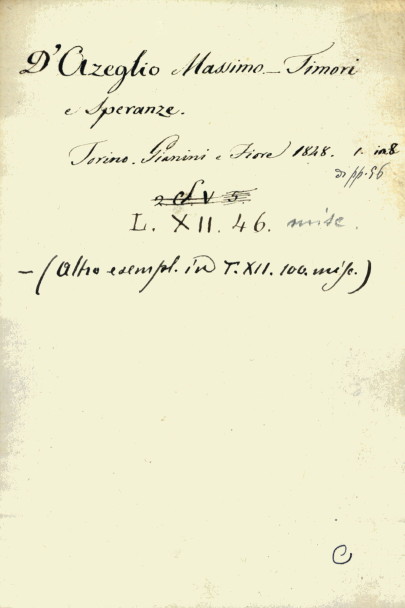 D'Azeglio Massimo_Timori
e Speranze.
Torino. Gianini e Fiore 1848. 1. in 8
di pp. 56
L. XII. 46. misc.
— (Altro esempl. in T. XII. 100. misc.)
C